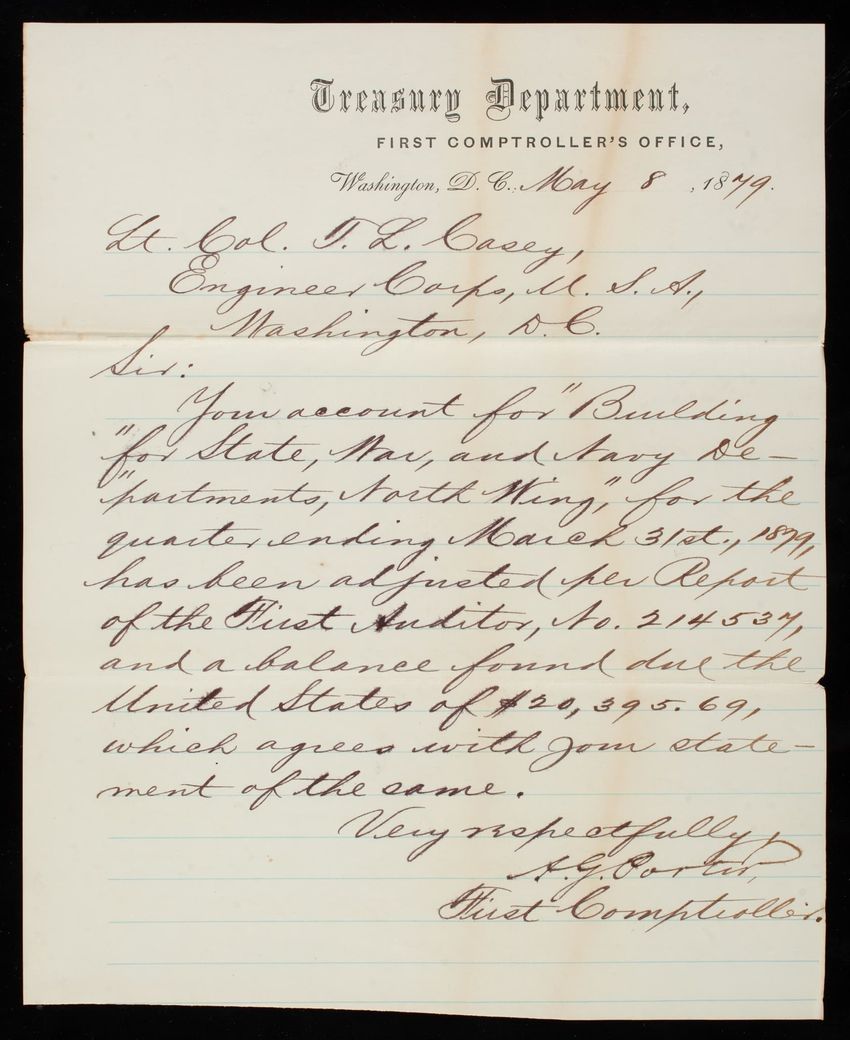 Treasury Department,
FIRST COMPTROLLER'S OFFICE,
Washington, D. C., May 8, 1879.
Lt. Col. T. L. Casey,
Engineer Corps, U. S. A.,
Washington, D.C.
Sir:
Your account for "Building
"for State, War, and Navy De-
"partments, North Wing," for the
quarter ending March 31st., 1879,
has been adjusted per Report
of the First Auditor, No. 214537,
and a balance found due the
United States of $20,395.69,
which agrees with your state-
ment of the same.
Very respectfully,
A.G. Porter,
First Comptroller.